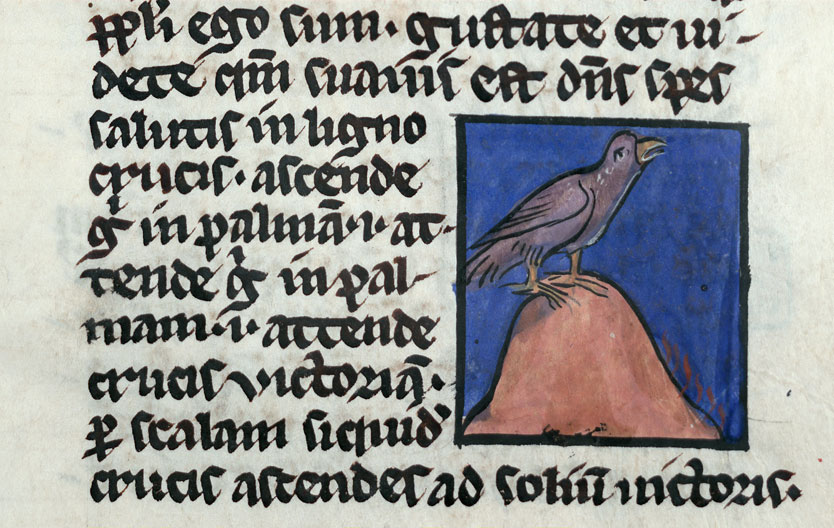 ppli ego sum. gustate et ui-
dete qm̄ suauis est dn̄s spes
salutis in ligno
crucis. ascende
g̊ in palmā.i. at-
tende g̊ in pal-
mam.i. attende
crucis uictoriā.
ꝑ scalam siquid'
crucis ascendes ad soliū uictoris.